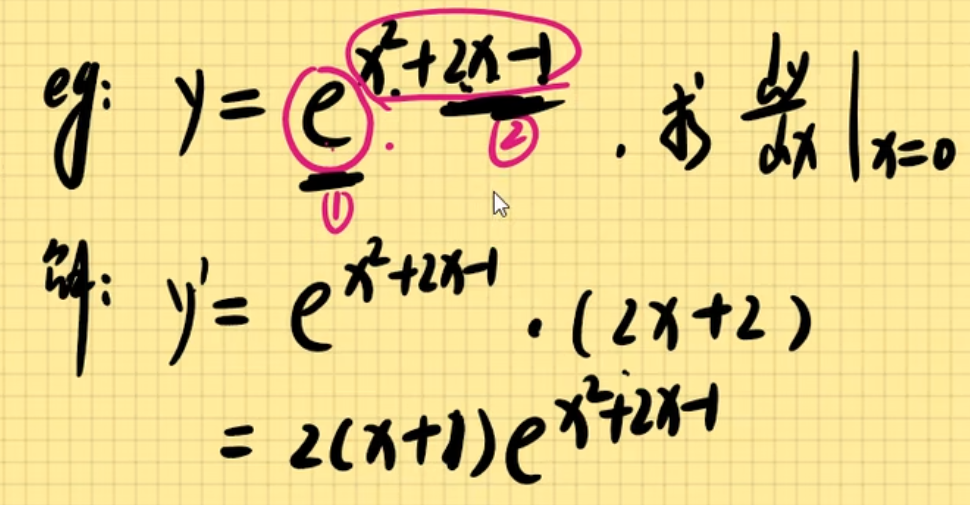 eg: y = e^{x²+2x-1} . 求 dy/dx |ₓ₌₀
① ②
解: y' = e^{x²+2x-1} · (2x+2)
= 2(x+1)e^{x²+2x-1}